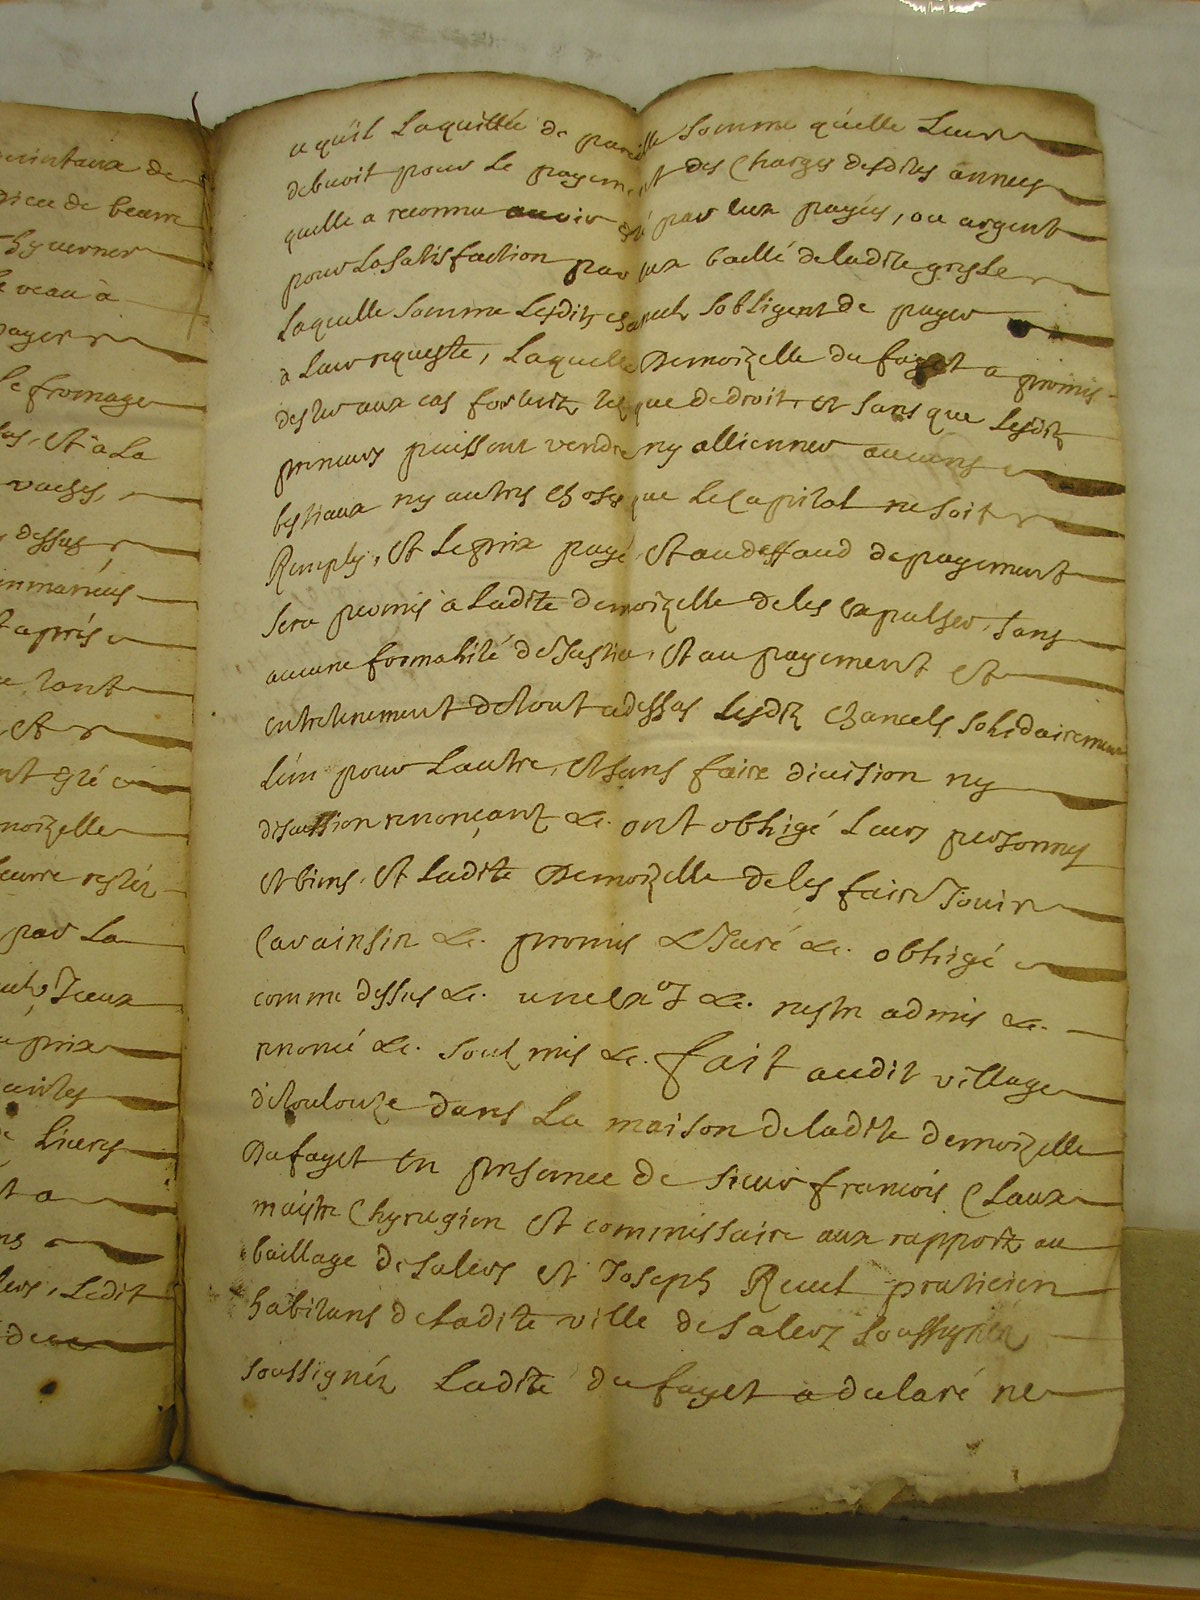 quintaux de
piece de beurre
hyverner
le veau à
payer
le fromage
et à La
vaches,
dessus
après
tant
et
nt gré
moizelle
beurre restés
par La
prix
livres
t a
Ledit
a quil Laquitté de pareille Somme quelle Leur
debuoit pour Le payement des Charges desdites annees
quelle a reconnu auoir esté par eux payées, ou argent
pour La satisfaction par eux baillé de ladite
Laquelle Somme Lesditz chancels sobligent de payer
a Leur requeste, Laquelle Demoizelle du fayet a promis
destre aux cas fortuitz telz que de droit, et sans que Lesditz
preneurs puissent vendre ny allienner aucuns
bestiaux ny autres choses que Le Capital ne soit
Remply, et Le prix payé, et au deffaud de payement
sera promis a Ladite demoizelle de les expulser, sans
aucune formalité de Justice, et au payement et
entretenement de tout cedessus Lesditz chancels solidairement
Lun pour Lautre, et sans faire diuision ny
discussion renonçant &c. ont obligé Leurs personnes
et biens, et Ladite Demoizelle de les faire Jouir
Car ainsin &c. promis & Juré &c. obligé
comme dessus &c. &c. restr admis &c.
renoncé &c. soubmis &c. fait audit village
de toulouze dans La maison de ladite demoizelle
Dufayet en presence de sieur francois Claux
maistre Chyrugien et commissaire aux rapportz au
baillage de Salers et Joseph Reuel praticien
habitans de Ladite ville de Salers soussignez
soussignéz Ladite du fayet a declaré ne